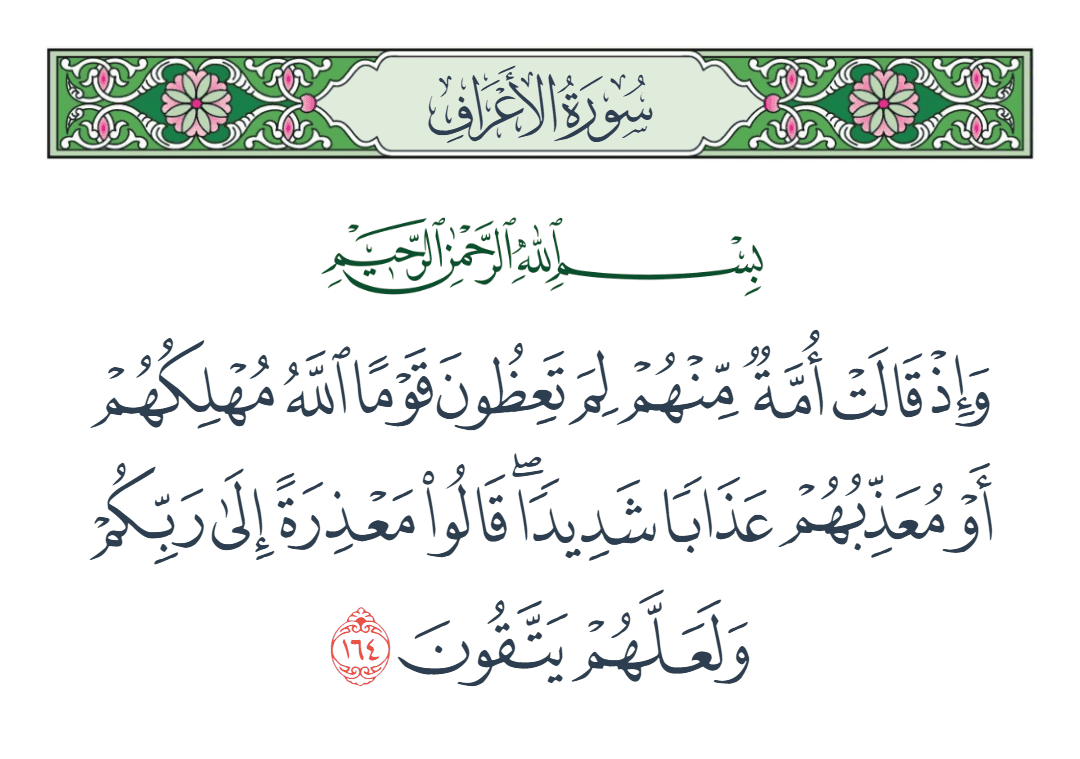 سُورَةُ الأَعْرَافِ
بِسْمِ ٱللَّهِ ٱلرَّحْمَٰنِ ٱلرَّحِيمِ
وَإِذْ قَالَتْ أُمَّةٌ مِّنْهُمْ لِمَ تَعِظُونَ قَوْمًا ٱللَّهُ مُهْلِكُهُمْ
أَوْ مُعَذِّبُهُمْ عَذَابًا شَدِيدًا ۖ قَالُوا۟ مَعْذِرَةً إِلَىٰ رَبِّكُمْ
وَلَعَلَّهُمْ يَتَّقُونَ ١٦٤